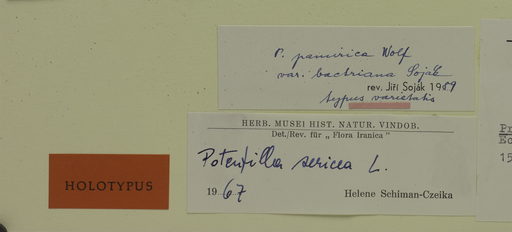 P. pamirica Wolf
var. bactriana Soják
rev. Jiří Soják 1989
typus varietatis
HERB. MUSEI HIST. NATUR. VINDOB.
Det./Rev. für „ Flora Iranica "
Potentilla sericea L.
1967 Helene Schiman-Czeika
HOLOTYPUS